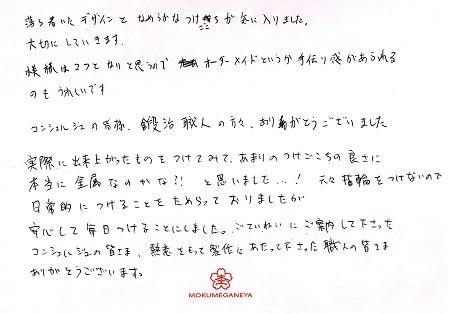 落ち着いたデザインとなめらかなつけ心地が気に入りました。
大切にしていきます。
模様は2つとないと思うので オーダーメイドというか手作り感があふれる
のもうれしいです
コンシェルジュの皆様、鍛冶職人の方々、ありがとうございました
実際に出来上がったものをつけてみて、あまりのつけごこちの良さに
本当に金属なのかな?! と思いました…! 元々指輪をつけないので
日常的につけることをためらっておりましたが
安心して毎日つけることにしました。ていねいにご案内して下さった
コンシェルジュの皆さま、熱意をもって製作にあたって下さった職人の皆さま
ありがとうございます。
MOKUMEGANEYA